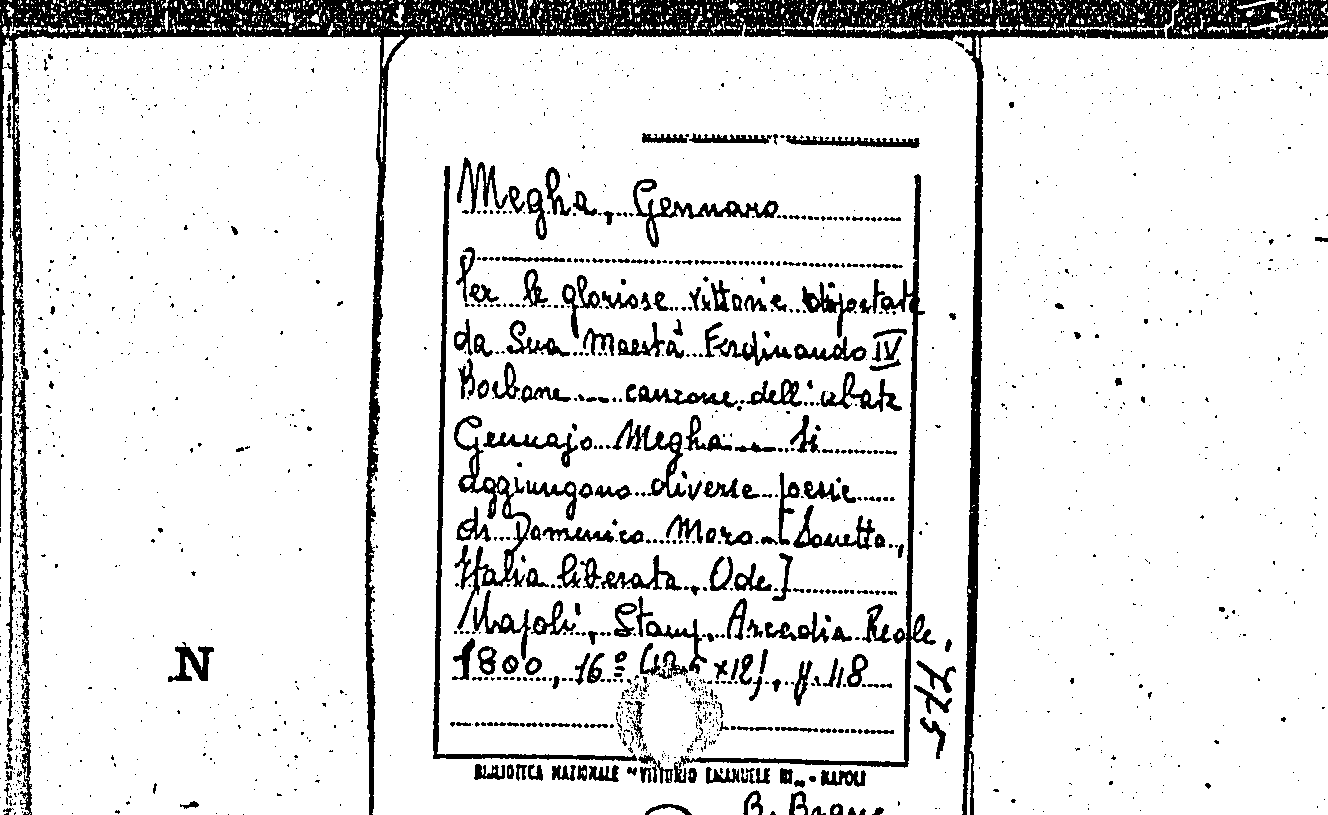 Megha, Gennaro
Per le gloriose vittorie
da Sua Maestà Ferdinando IV
Borbone... canzone dell'abate
Gennajo Megha... Si
aggiungono diverse poesie
di Domenico Moro [Sonetto,
Italia liberata, Ode]
Napoli, Stamp. Arcadia Reale,
1800, 16º x12), p. 48
577.
N
BIBLIOTECA NAZIONALE "VITTORIO EMANUELE III" - NAPOLI
B. Branc.